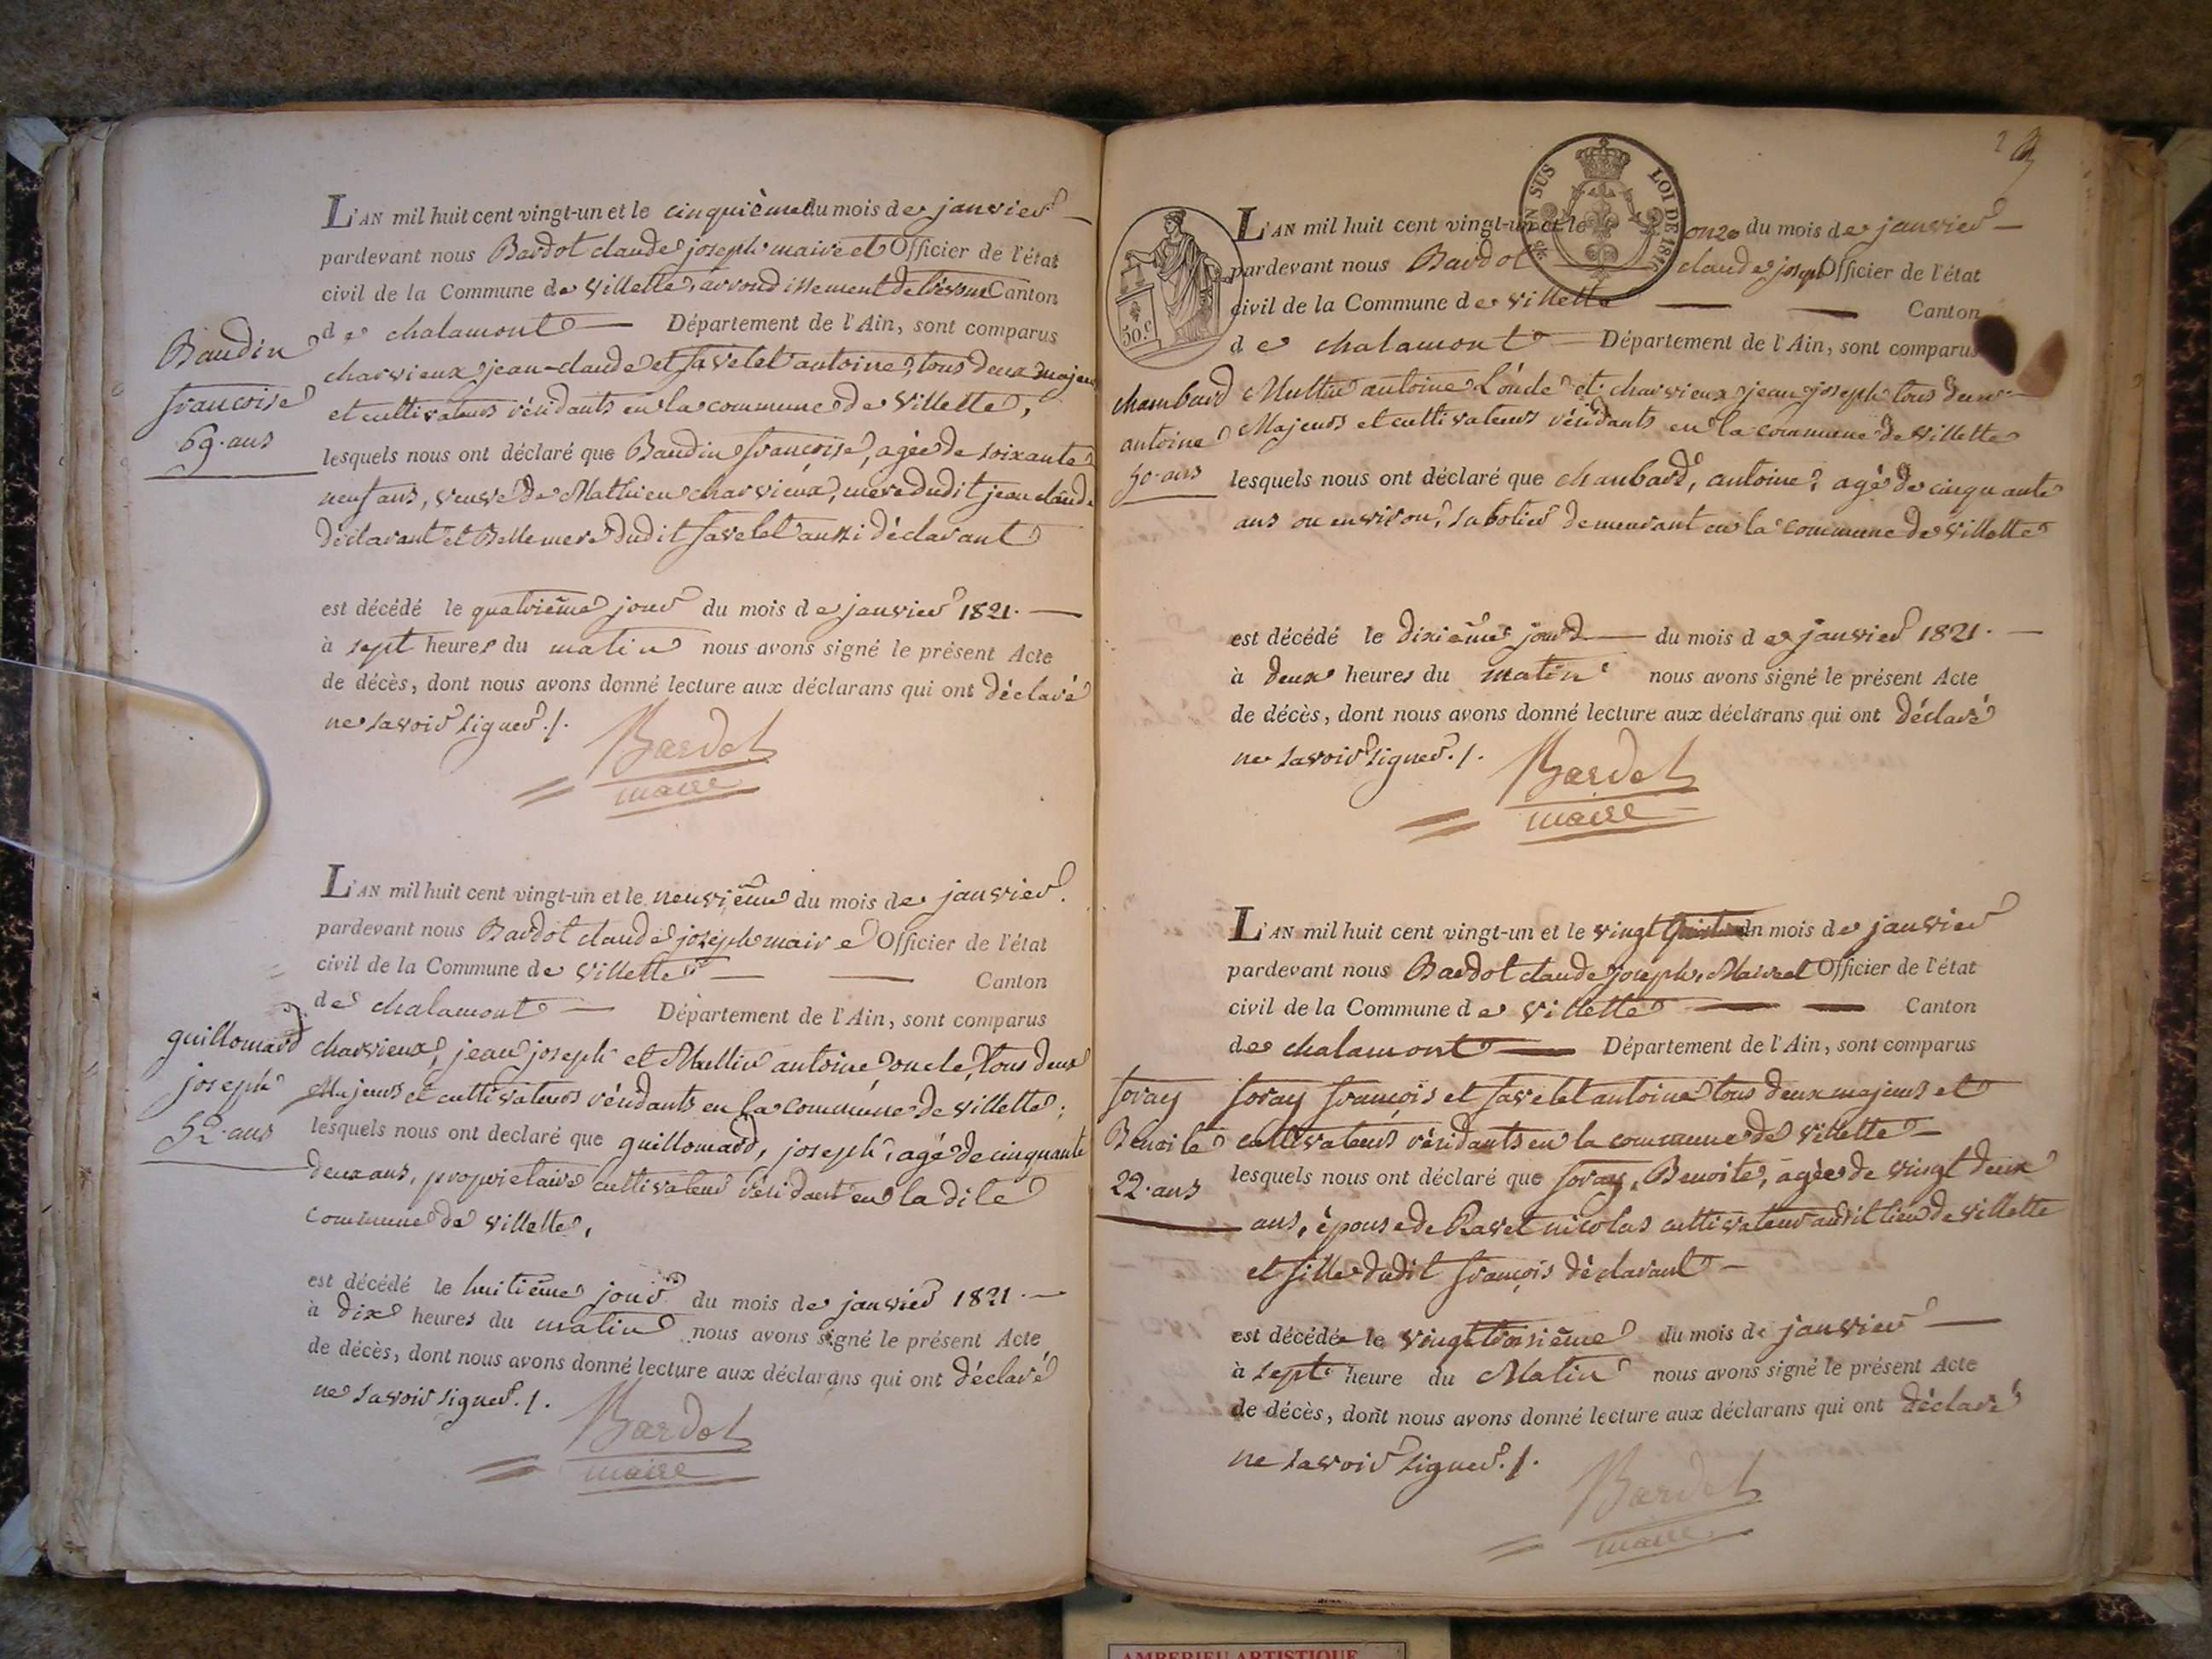 L'AN mil huit cent vingt-un et le cinquième du mois de janvier
pardevant nous Bardot claude joseph maire et Officier de l'état
civil de la Commune de villette, arrondissement de Canton
de chalamont Département de l'Ain, sont comparus
Baudin
françoise
69. ans
charvieux jean-claude et favelet antoine, tous deux majeurs
et cultivateurs résidants en la commune de villette,
lesquels nous ont déclaré que Baudin françoise, agée de soixante
neuf ans, veuve de Mathieu charvieux, mere dudit jean claude
déclarant et Belle mere dudit favelet aussi déclarant
est décédé le quatrième jour du mois de janvier 1821.
à sept heures du matin nous avons signé le présent Acte
de décès, dont nous avons donné lecture aux déclarans qui ont déclaré
ne savoir signer ./.
Bardot
maire
L'AN mil huit cent vingt-un et le neuvième du mois de janvier.
pardevant nous Bardot claude joseph maire Officier de l'état
civil de la Commune de villette Canton
de chalamont Département de l'Ain, sont comparus
guillomard
joseph
52. ans
charvieux, jean joseph et Multin antoine oncle, tous deux
Majeurs et cultivateurs résidants en la commune de villette;
lesquels nous ont declaré que guillomard, joseph, agé de cinquante
deux ans, proprietaire cultivateur résidant en la dite
commune de villette,
est décédé le huitième jour du mois de janvier 1821.
à dix heures du matin nous avons signé le présent Acte
de décès, dont nous avons donné lecture aux déclarans qui ont déclaré
ne savoir signer ./.
Bardot
maire
SUS LOI DE 1816
50.c
L'AN mil huit cent vingt-un et le onze du mois de janvier
pardevant nous Bardot claude joseph Officier de l'état
civil de la Commune de villette Canton
de chalamont Département de l'Ain, sont comparus
chambard
antoine
50. ans
Multin antoine L'oncle et charvieux jean joseph tous deux
Majeurs et cultivateurs résidants en la commune de villette
lesquels nous ont déclaré que chambard, antoine, agé de cinquante
ans ou environ, sabotier demeurant en la commune de villette
est décédé le dixième jour du mois de janvier 1821.
à deux heures du matin nous avons signé le présent Acte
de décès, dont nous avons donné lecture aux déclarans qui ont déclaré
ne savoir signer ./.
Bardot
maire
L'AN mil huit cent vingt-un et le vingt du mois de janvier
pardevant nous Bardot claude joseph, Maire et Officier de l'état
civil de la Commune de villette Canton
de chalamont Département de l'Ain, sont comparus
foray
Benoite
22. ans
foray françois et favelet antoine tous deux majeurs et
cultivateurs résidants en la commune de villette
lesquels nous ont déclaré que foray, Benoite, agée de vingt deux
ans, épouse de Ravet nicolas cultivateur audit lieu de villette
et fille dudit françois déclarant
est décédée le vingt troisième du mois de janvier
à sept heure du Matin nous avons signé le présent Acte
de décès, dont nous avons donné lecture aux déclarans qui ont déclaré
ne savoir signer ./.
Bardot
maire
AMBERIEU ARTISTIQUE